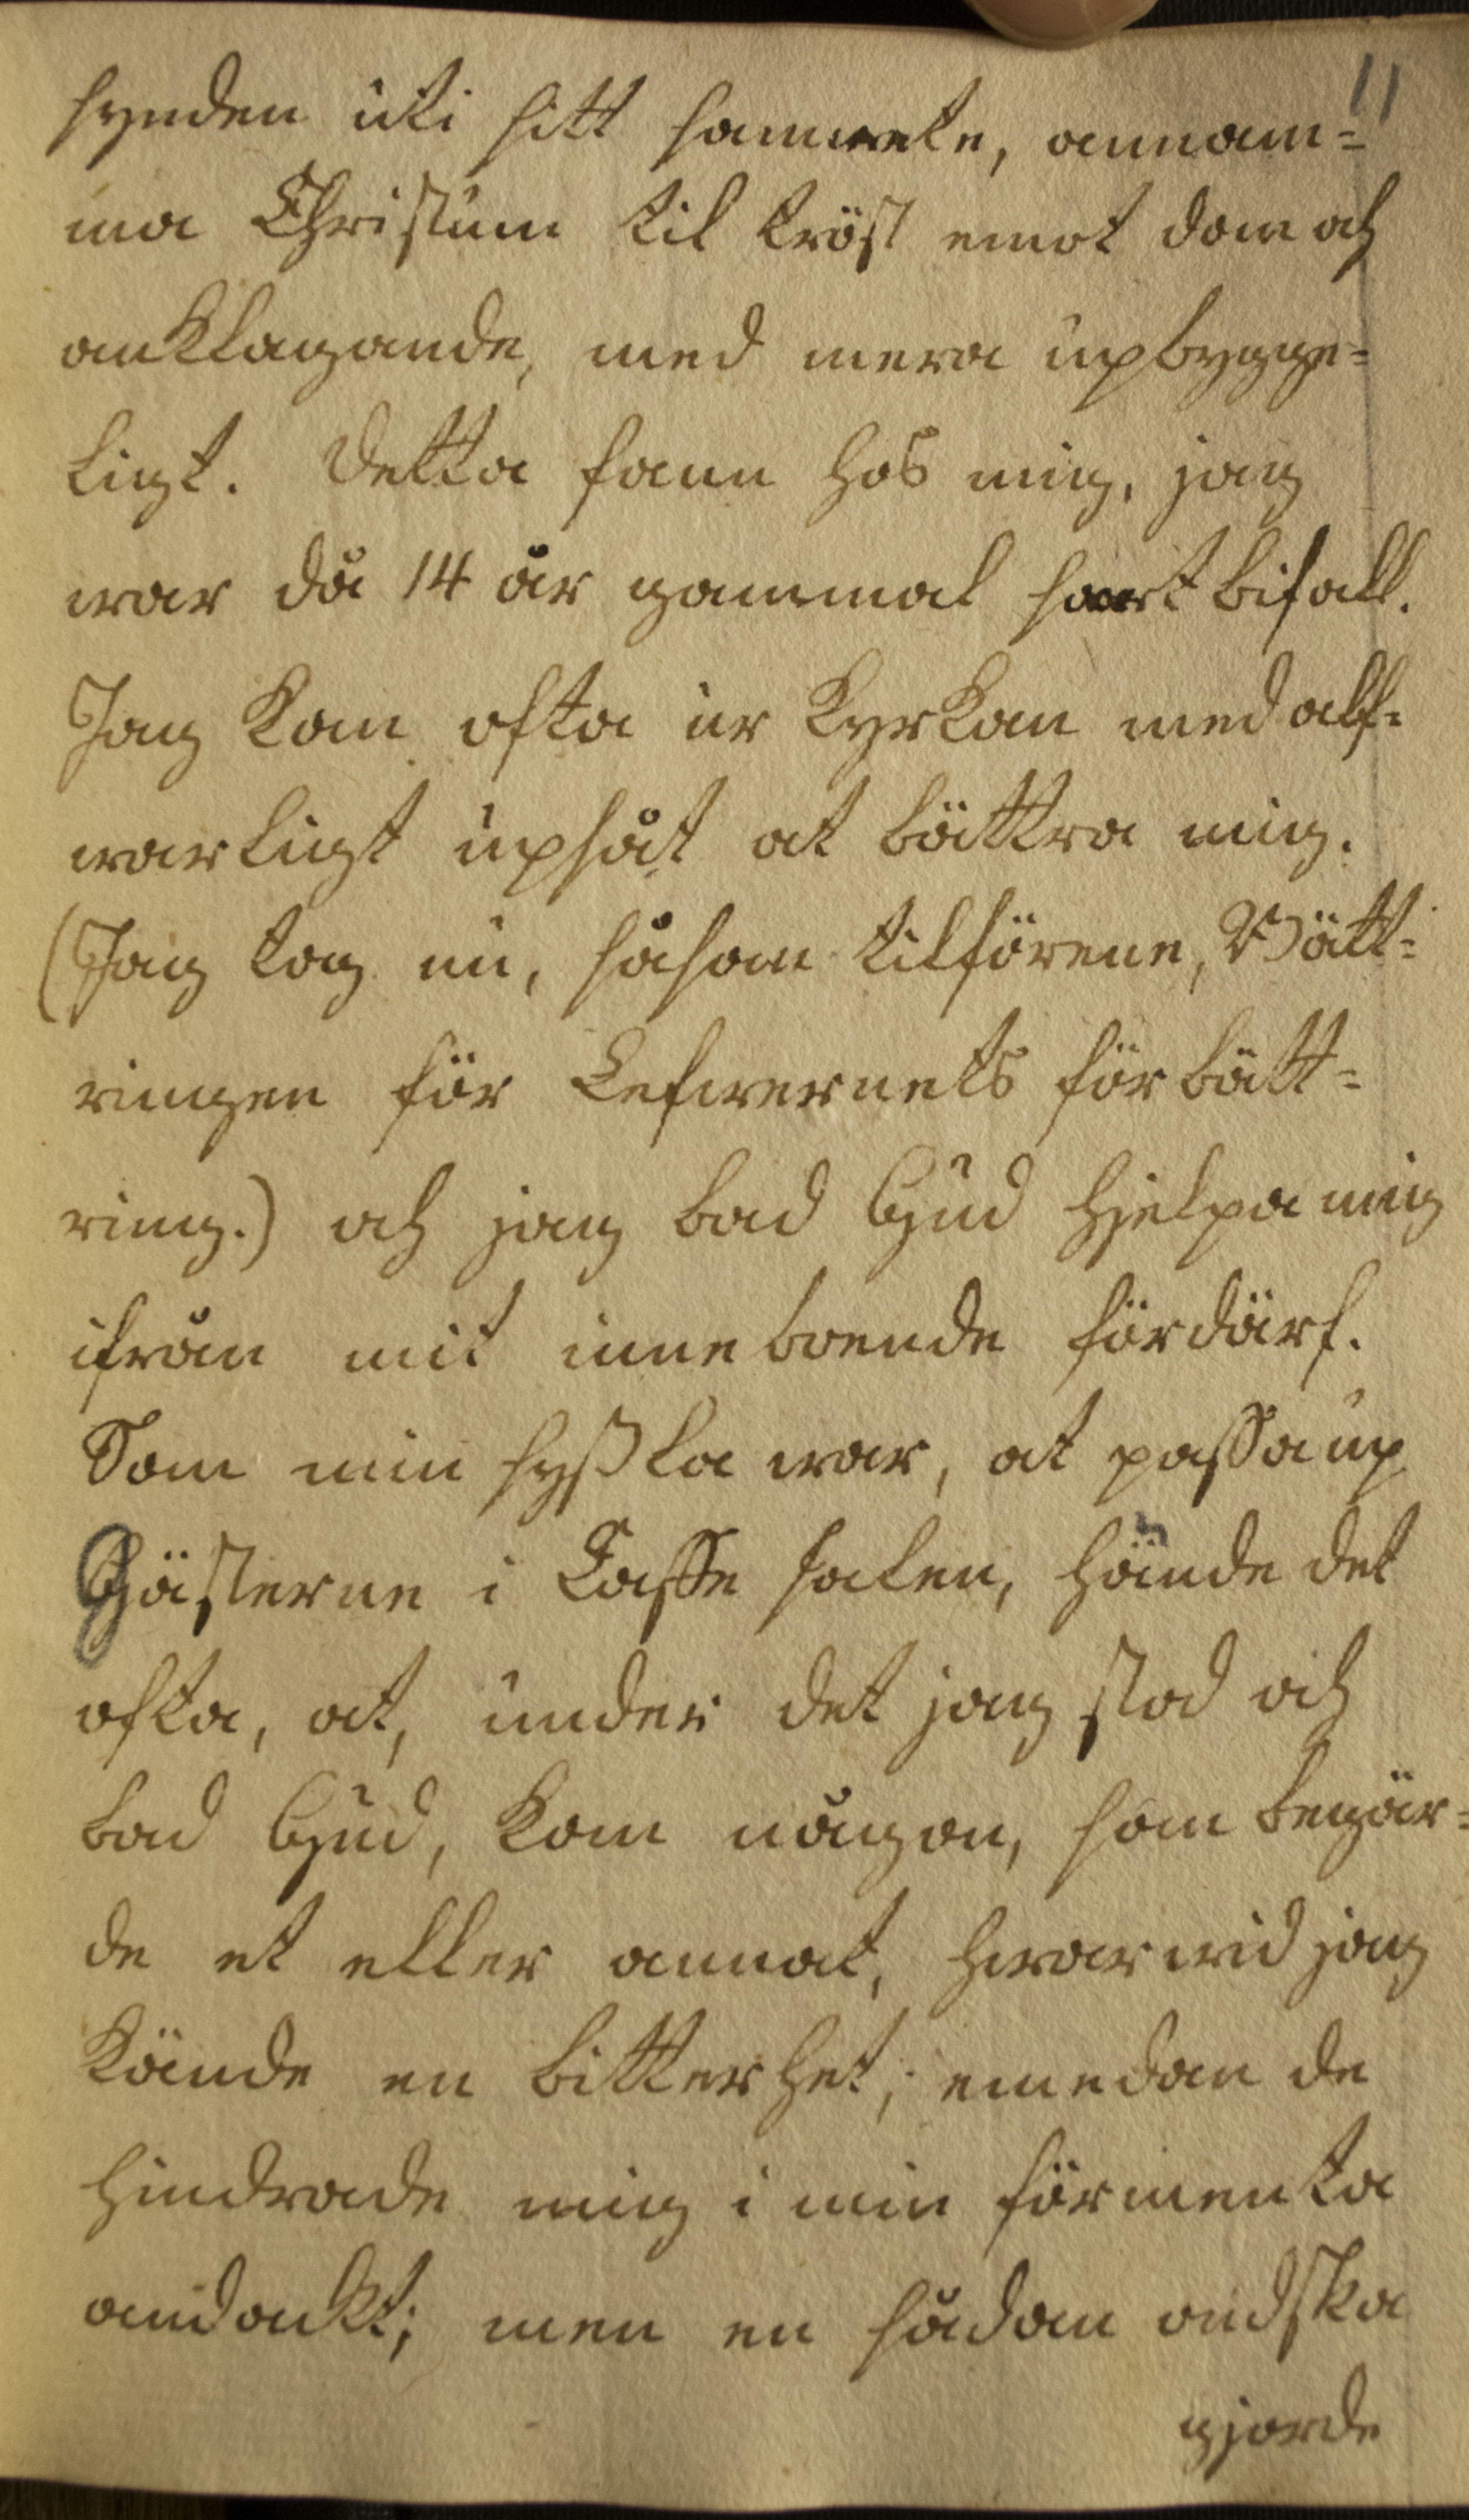 11
synden uti sitt samwete, annam=
ma Christum til tröst emot dom och
anklagande, med mera upbygge=
ligt. Detta fann hos mig, jag
war då 14 år gammal snart bifall.
Jag kom ofta ur Kyrkan med alf=
warligt upsåt at bättra mig.
(Jag tog nu, såsom tilförene, Bätt=
ringen för Lefwernets förbätt=
ring.) och jag bad Gud hjelpa mig
ifrån mit inneboende förderf.
Som min syßla war, at passa up
Gästerne i Caffe salen, hände det
ofta, at, under det jag stod och
bad Gud, kom någon, som begär=
de et eller annat, hwarwid jag
kände en bitterhet; emedan de
hindrade mig i min förmenta
andackt; men en sådan ondska
gjorde